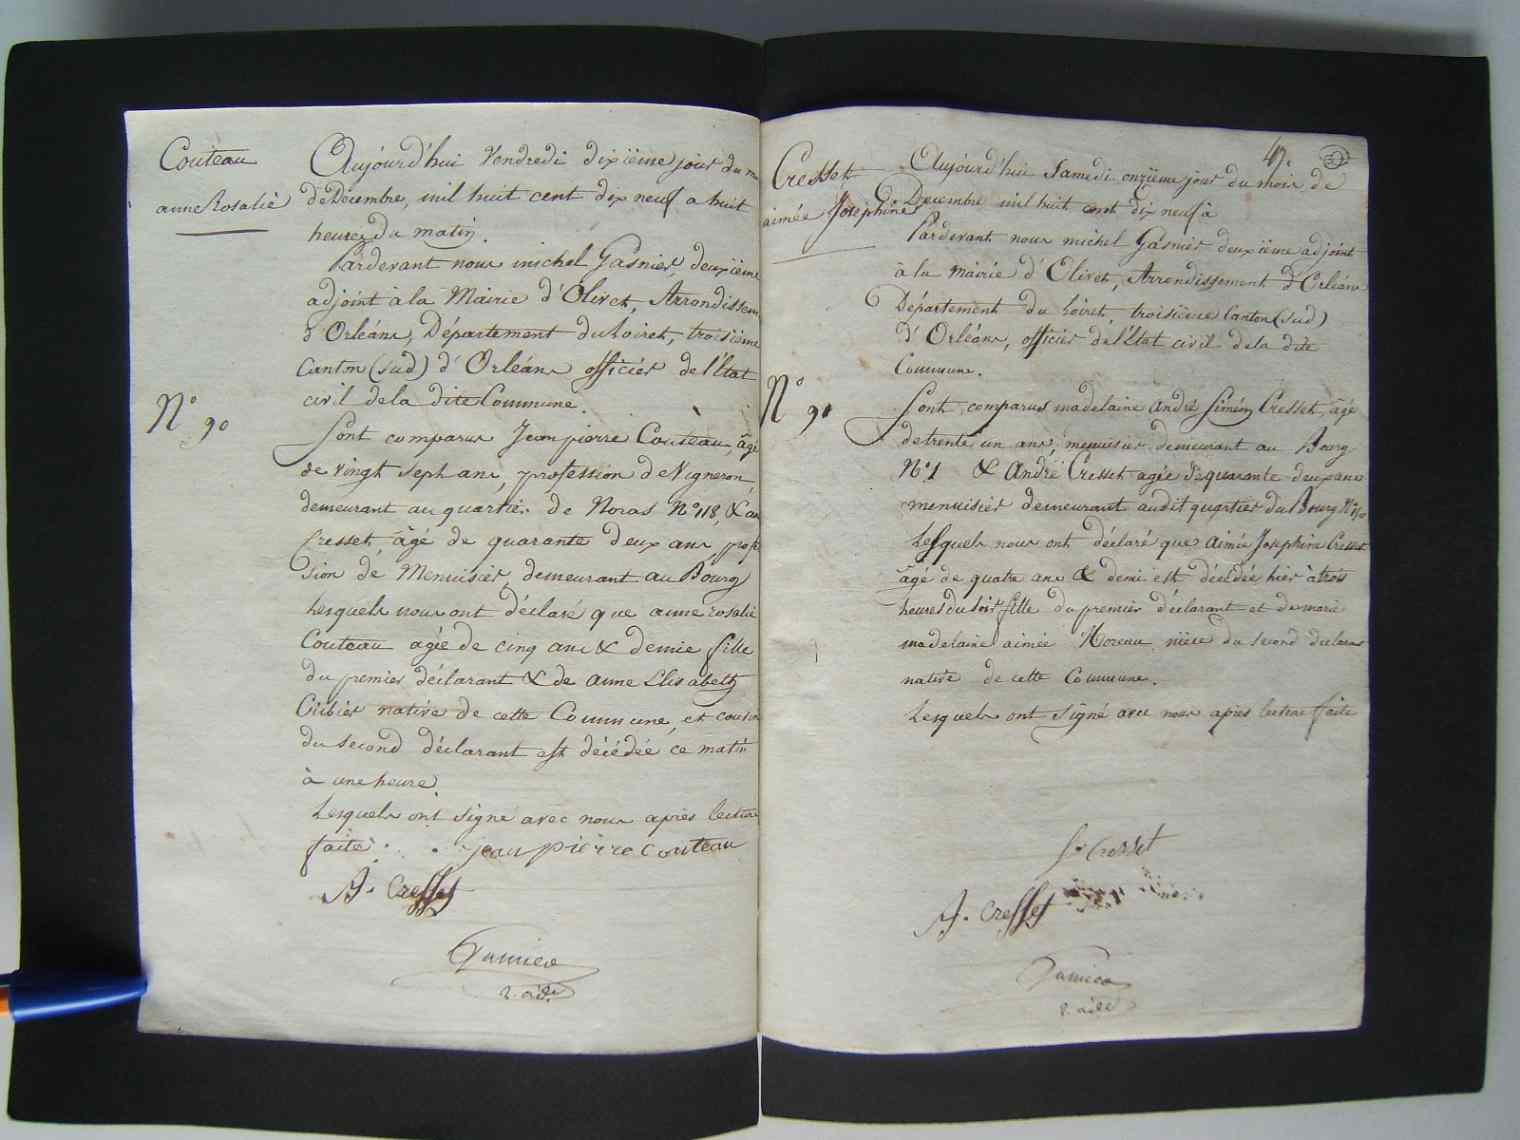 Couteau
anne Rosalie
Aujourd'hui Vendredi dixième jour du
de Decembre, mil huit cent dix neuf a huit
heures du matin.
Pardevant nous michel Gasnier, deuxième
adjoint à la Mairie d'Olivet, Arrondissem
d'Orléans, Département du Loiret, troisième
Canton (sud) d'Orléans officier de l'État
civil de la dite Commune.
N° 90
Sont comparus Jean pierre Couteau, âgé
de vingt sept ans, profession de Vigneron,
demeurant au quartier de Noras N° 118, &
Cresset âgé de quarante deux ans, profes
sion de Menuisier, demeurant au Bourg
Lesquels nous ont déclaré que anne rosalie
Couteau agée de cinq ans & demie fille
du premier déclarant & de anne Elisabeth
Cribier native de cette Commune, et cousin
du second déclarant est décédée ce matin
à une heure.
Lesquels ont signé avec nous après lecture
faite.
jean pierre Couteau
A. Cresset
Gasnier
2. adt
47.
50
Cresset
aimée Joséphine
Aujourd'hui Samedi onzième jour du mois de
Decembre mil huit cent dix neuf à
Pardevant nous michel Gasnier deuxième adjoint
à la Mairie d'Olivet, Arrondissement d'Orléans
Département du Loiret, troisième Canton (sud)
d'Orléans, officier de l'État civil de la dite
Commune.
N° 91
Sont comparus madelaine andré Siméon Cresset, âgé
de trente un ans, menuisier demeurant au Bourg
N° 1 & André Cresset agée de quarante deux ans
menuisier demeurant audit quartier du Bourg
Lesquels nous ont déclaré que aimée Josephine Cresset
âgé de quatre ans & demi est décédée hier à trois
heures du soir fille du premier déclarant et de marie
madelaine aimée Moreau nièce du second declarant
native de cette Commune.
Lesquels ont signé avec nous après lecture faite
S. Cresset
A. Cresset
Gasnier
2. adt